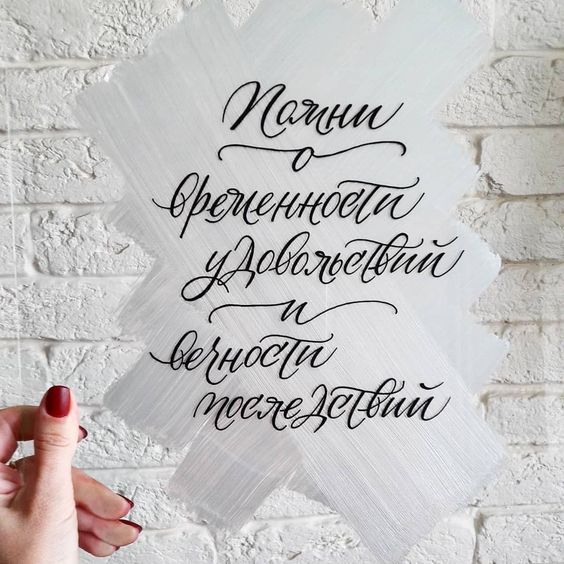 Помни
о
временности
удовольствий
и
вечности
последствий